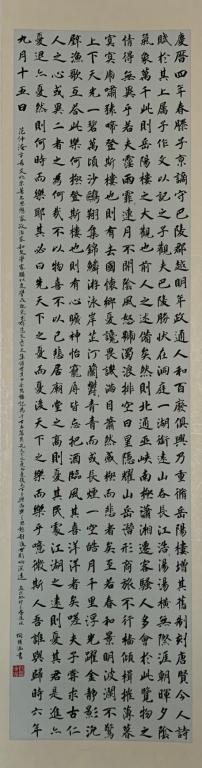 慶曆四年春滕子京謫守巴陵郡越明年政通人和百廢俱興乃重脩岳陽樓增其舊制刻唐賢今人詩
賦於其上屬予作文以記之予觀夫巴陵勝狀在洞庭一湖銜遠山吞長江浩浩湯湯橫無際涯朝暉夕陰
氣象萬千此則岳陽樓之大觀也前人之述備矣然則北通巫峽南極瀟湘遷客騷人多會於此覽物之
情得無異乎若夫霪雨霏霏連月不開陰風怒號濁浪排空日星隱耀山岳潛形商旅不行檣傾楫摧薄暮
冥冥虎嘯猿啼登斯樓也則有去國懷鄉憂讒畏譏滿目蕭然感極而悲者矣至若春和景明波瀾不驚
上下天光一碧萬頃沙鷗翔集錦鱗游泳岸芷汀蘭鬱鬱青青而或長煙一空皓月千里浮光躍金靜影沉
璧漁歌互答此樂何極登斯樓也則有心曠神怡寵辱皆忘把酒臨風其喜洋洋者矣嗟夫予嘗求古仁
人之心或異二者之為何哉不以物喜不以己悲居廟堂之高則憂其民處江湖之遠則憂其君是進亦
憂退亦憂然則何時而樂耶其必曰先天下之憂而憂後天下之樂而樂乎噫微斯人吾誰與歸時六年
九月十五日